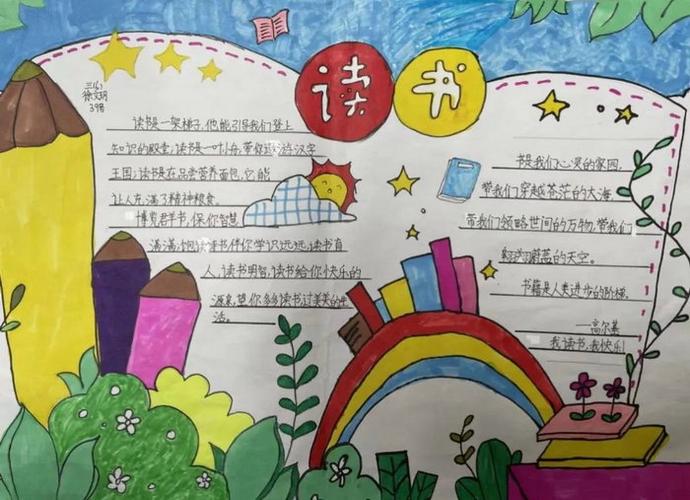 读书
三(6)
徐文玥
39号
读书是一架梯子,他能引导我们登上
知识的殿堂,读书是一叶小舟,带你遨游汉字
王国;读书是在品尝营养面包,它能
让人充满了精神粮食。
博览群书,保你智慧
满满;饱读诗书伴你学识远远,读书育
人,读书明智,读书给你快乐的
源泉,望你多多读书过美美的生
活。
书是我们心灵的家园,
带我们穿越苍茫的大海,
带我们领略世间的万物,带我们
翱翔蔚蓝的天空。
书籍是人类进步的阶梯。
——高尔基
我读书,我快乐!